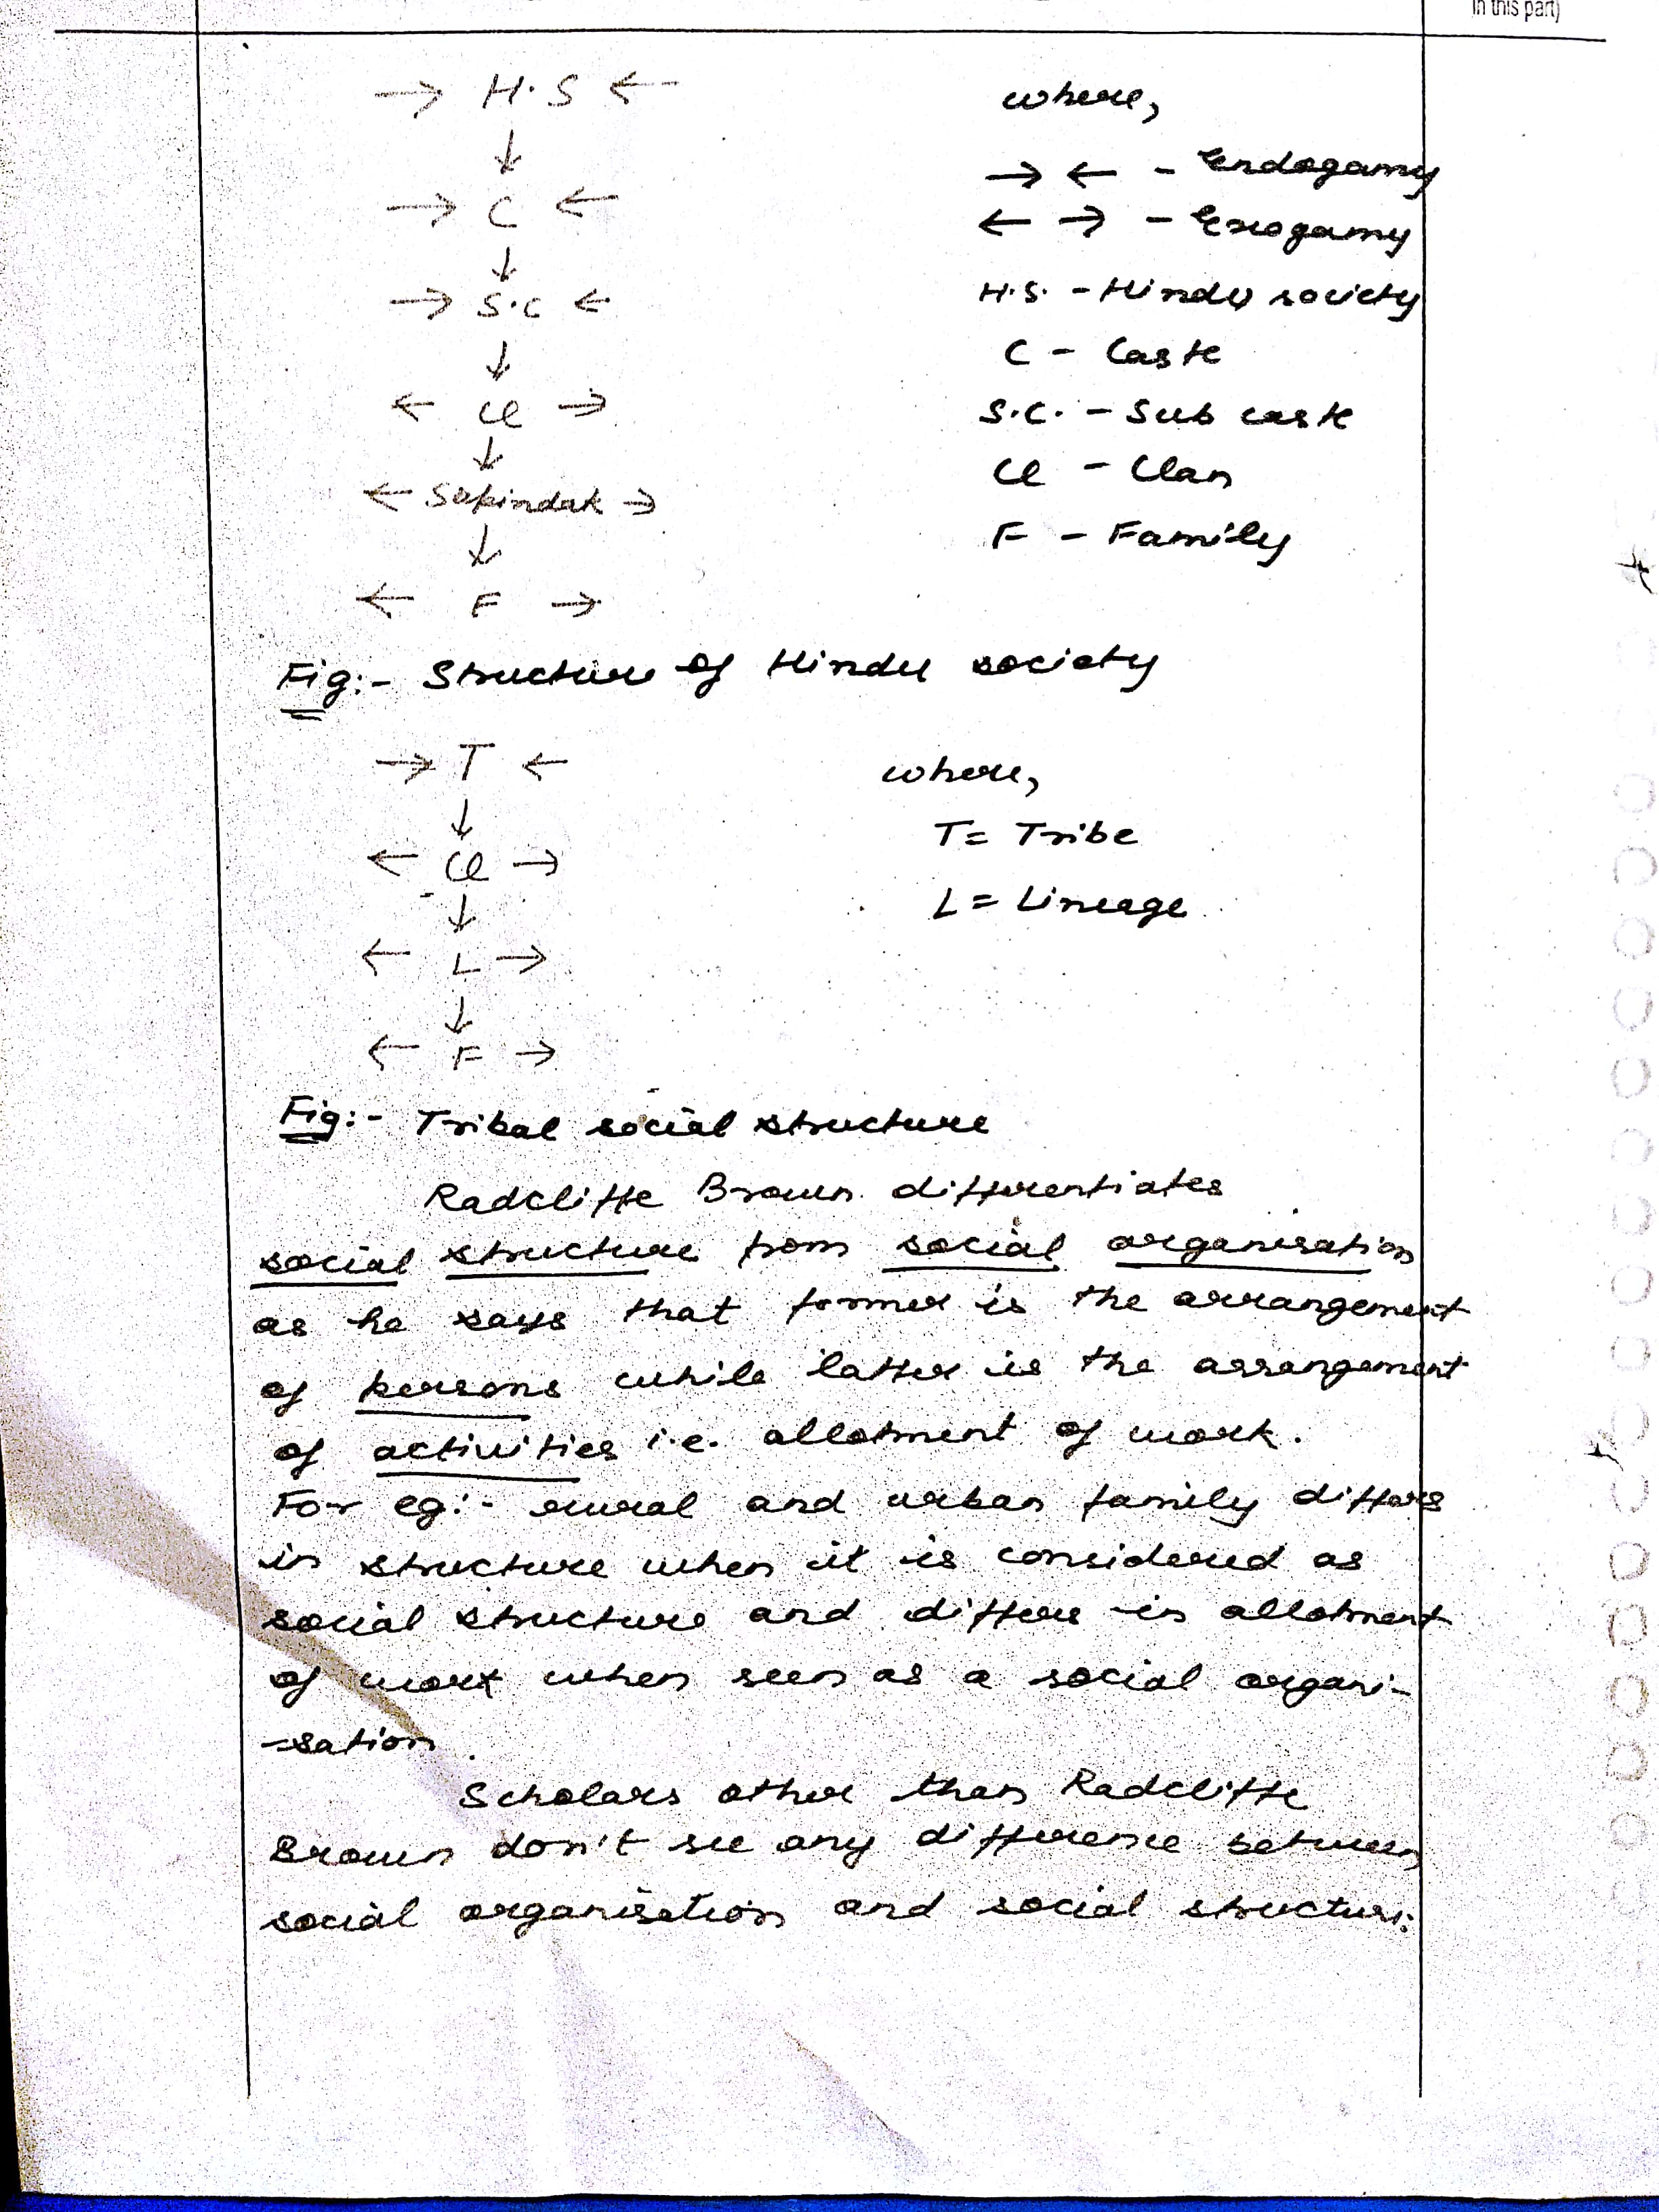 in this part)
→ H.S ←
↓
→ C ←
↓
→ S.C ←
↓
← Cl →
↓
← Sapindak →
↓
← F →
where,
→ ← - Endogamy
← → - Exogamy
H.S. - Hindu society
C - Caste
S.C. - Sub caste
Cl - Clan
F - Family
Fig:- Structure of Hindu society
→ T ←
↓
← Cl →
↓
← L →
↓
← F →
where,
T = Tribe
L = Lineage
Fig:- Tribal social structure
Radcliffe Brown differentiates
social structure from social organisation
as he says that former is the arrangement
of persons while latter is the arrangement
of activities i.e. allotment of work.
For eg:- rural and urban family differs
in structure when it is considered as
social structure and differs in allotment
of work when seen as a social organi-
-sation.
Scholars other than Radcliffe
Brown don't see any difference between
social organisation and social structure.